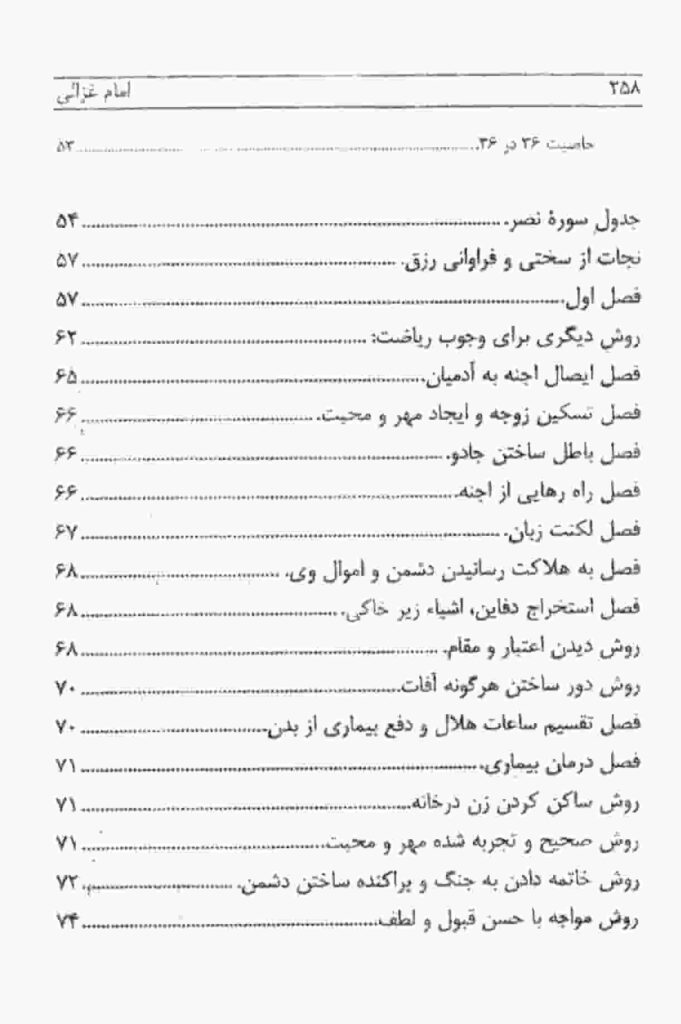 ۲۵۸ امام غزالی
خاصیت ۳۶ در ۳۶ ..... ۵۳
جدول سورهٔ نصر ..... ۵۴
نجات از سختی و فراوانی رزق ..... ۵۷
فصل اول ..... ۵۷
روش دیگری برای وجوب ریاضت: ..... ۶۲
فصل ایصال اجنه به آدمیان ..... ۶۵
فصل تسکین زوجه و ایجاد مهر و محبت ..... ۶۶
فصل باطل ساختن جادو ..... ۶۶
فصل راه رهایی از اجنه ..... ۶۶
فصل لکنت زبان ..... ۶۷
فصل به هلاکت رسانیدن دشمن و اموال وی ..... ۶۸
فصل استخراج دفاین، اشیاء زیر خاکی ..... ۶۸
روش دیدن اعتبار و مقام ..... ۶۸
روش دور ساختن هرگونه آفات ..... ۷۰
فصل تقسیم ساعات هلال و دفع بیماری از بدن ..... ۷۰
فصل درمان بیماری ..... ۷۱
روش ساکن کردن زن درخانه ..... ۷۱
روش صحیح و تجربه شده مهر و محبت ..... ۷۱
روش خاتمه دادن به جنگ و پراکنده ساختن دشمن ..... ۷۲
روش مواجه با حسن قبول و لطف ..... ۷۴